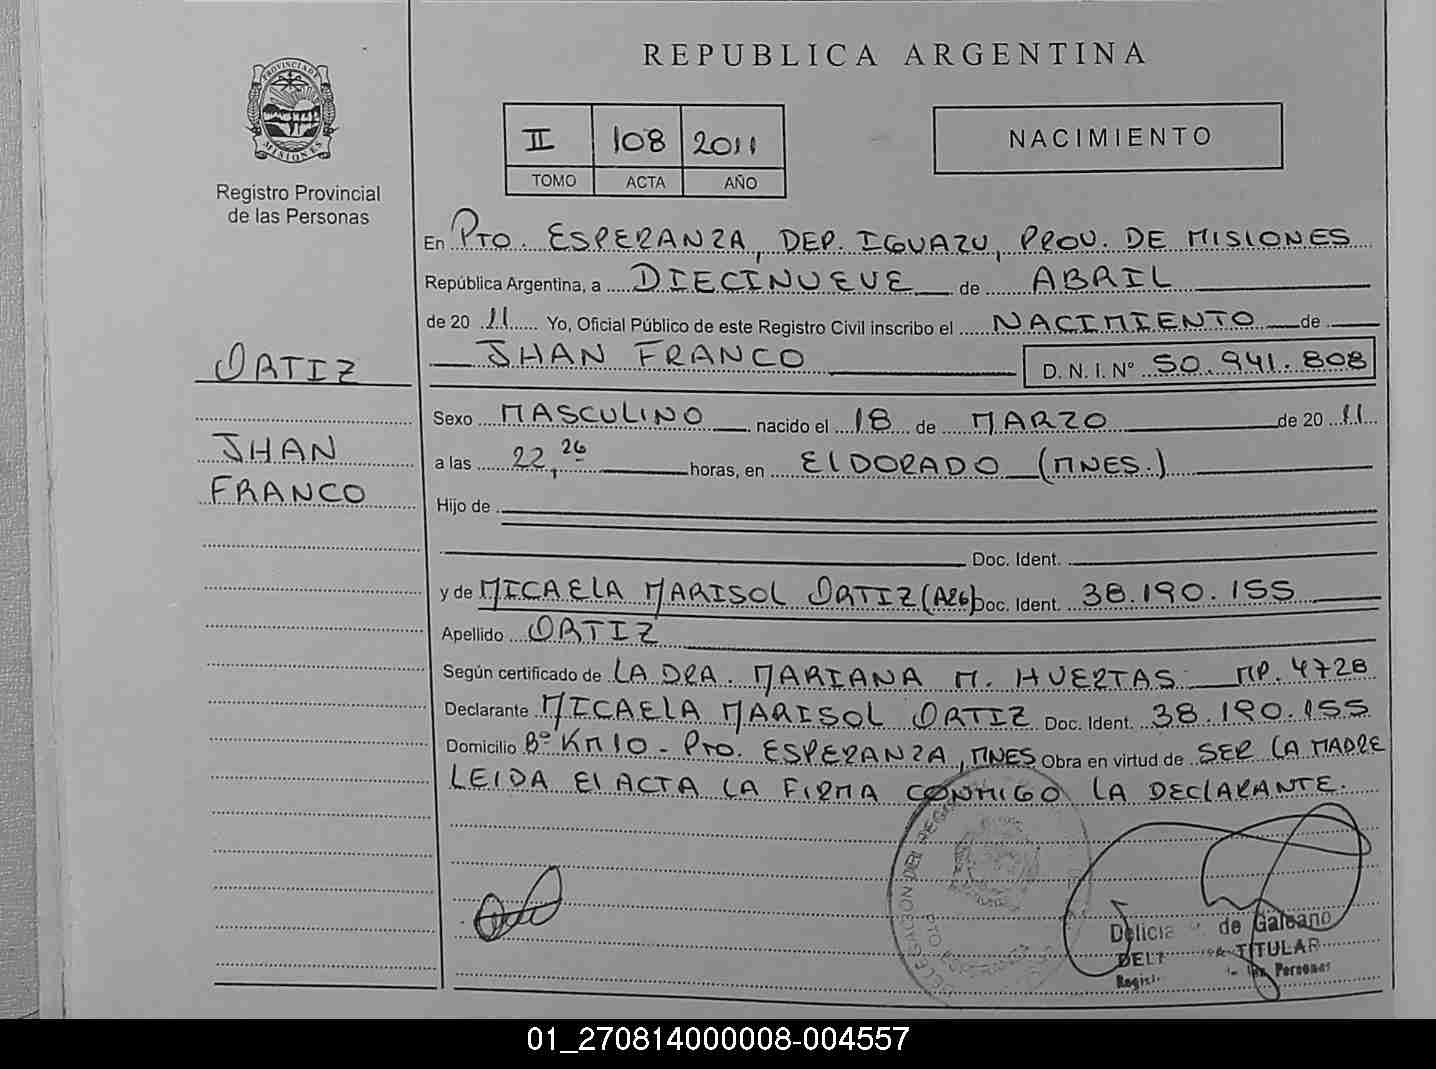 REPUBLICA ARGENTINA
PROVINCIA DE
MISIONES
Registro Provincial
de las Personas
II 108 2011
TOMO ACTA AÑO
NACIMIENTO
En PTO. ESPERANZA, DEP. IGUAZU, PROV. DE MISIONES
República Argentina, a DIECINUEVE de ABRIL
de 20 11 Yo, Oficial Público de este Registro Civil inscribo el NACIMIENTO de
JHAN FRANCO D. N. I. Nº 50.941.808
ORTIZ
JHAN
FRANCO
Sexo MASCULINO nacido el 18 de MARZO de 20 11
a las 22,26 horas, en ElDORADO (MNES.)
Hijo de
Doc. Ident.
y de MICAELA MARISOL ORTIZ (ARG) Doc. Ident. 38.190.155
Apellido ORTIZ
Según certificado de LA DRA. MARIANA M. HUERTAS MP. 4728
Declarante MICAELA MARISOL ORTIZ Doc. Ident. 38.190.155
Domicilio Bº KM10 - PTO. ESPERANZA, MNES Obra en virtud de SER LA MADRE
LEIDA El ACTA LA FIRMA CONMIGO LA DEClARANTE.
Delicia de Galeano
TITULAR
Personas
01_270814000008-004557